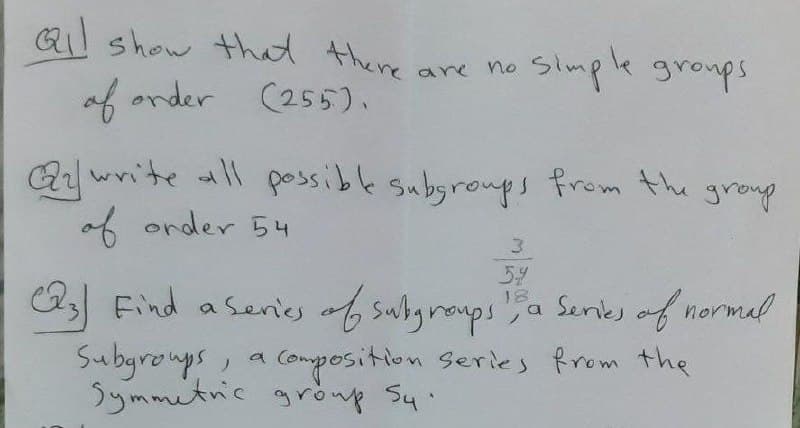 Q1| show that there are no simple groups
of order (255).
Q2| write all possible subgroups from the group
of order 54
3
54
18
Q3| Find a series of subgroups, a series of normal
subgroups, a composition series from the
symmetric group S4.